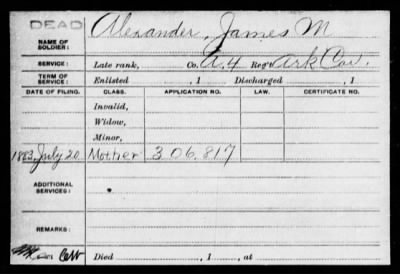 DEAD
Alexander, James M
NAME OF SOLDIER:
SERVICE: Late rank, Co. A, 4 Reg't Ark Cav.
TERM OF SERVICE: Enlisted , 1 Discharged , 1
DATE OF FILING. CLASS. APPLICATION NO. LAW. CERTIFICATE NO.
Invalid,
Widow,
Minor,
1883, July 20 Mother 306.817
ADDITIONAL SERVICES:
REMARKS:
Died , 1 , at